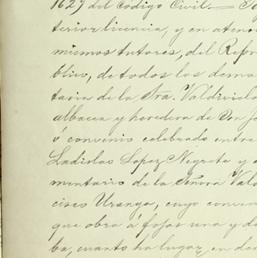 1627 del Código Civil
terior licencia, y en aten
mismos tutores, del Repre
blico, de todos los dema
taria de la Sra. Valdiviels
albacea y heredera de Don
ó convenio celebrado entre
Ladislao Lopez Negrete y
mentario de la Señora Val
cisco Uranga, cuyo conve
que obra a fojas una y d
ba, cuanto ha lugar, en de